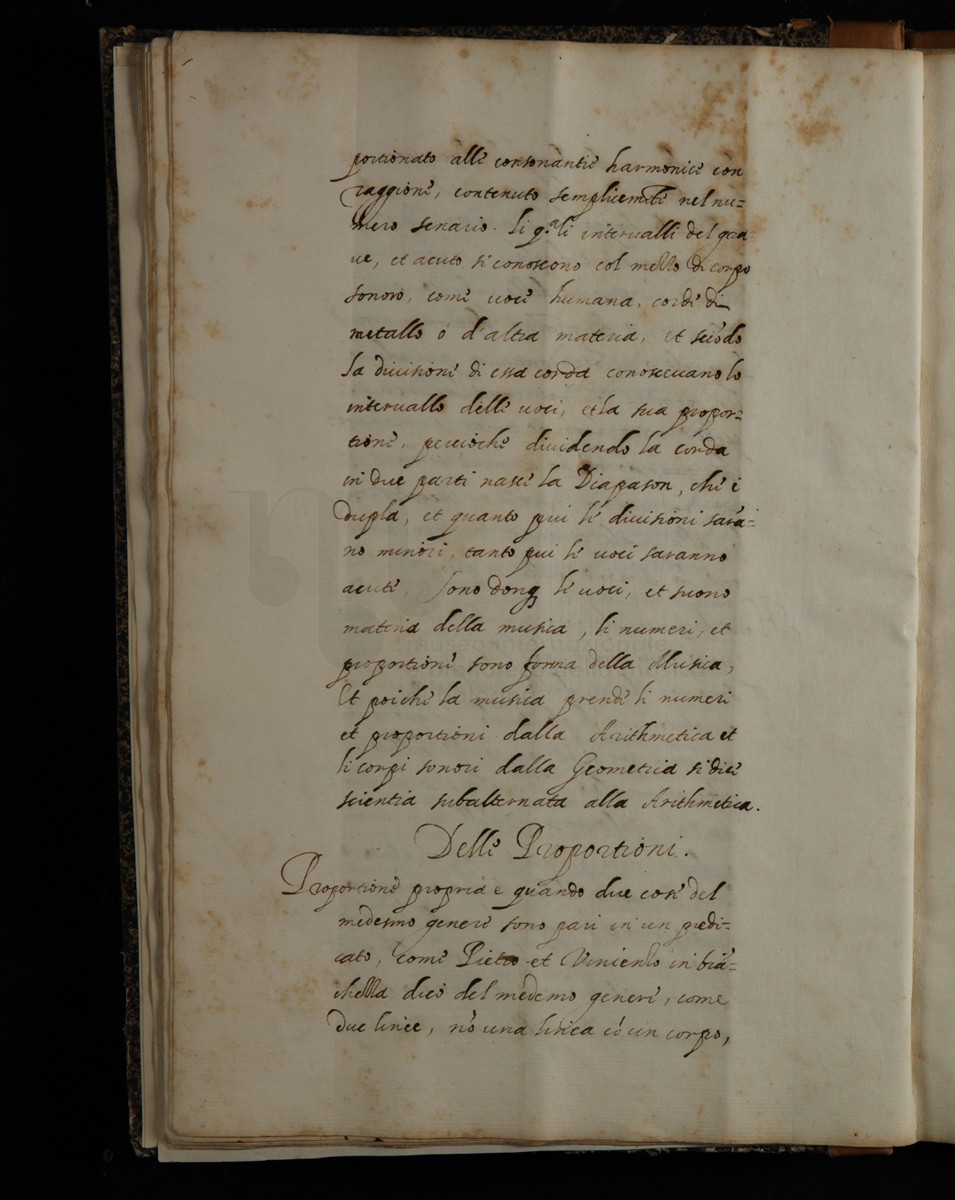 portionato alle consonantie harmonice con
raggione, contenuto semplicemte nel nu=
mero senario. li q.ali intervalli del gra=
ve, et acuto si conoscono col mezzo di corpo
sonoro, come voce humana, corde di
metallo ò d'altra materia, et secòdo
la divisione di essa corda conoscevano lo
intervallo delle voci, et la sua propor=
tione, percioche dividendo la corda
in due parti nasce la Diapason, che è
Dupla, et quanto piu le divisioni sarà=
no minori, tanto piu le voci saranno
acute. Sono donq le voci, et suono
materia della musica, li numeri, et
proportioni sono forma della Musica,
Et poiche la musica prende li numeri
et proportioni dalla Arithmetica et
li corpi sonori dalla Geometria si dice
scientia subalternata alla Arithmetica.
Delle Proportioni.
Proportione propria e quando due cose del
medesmo genere sono pari in un predi=
cato, come Pietro et Vincenzo in biã=
chezza dico del medemo genere, come
due linee, nò una linea cò un corpo,